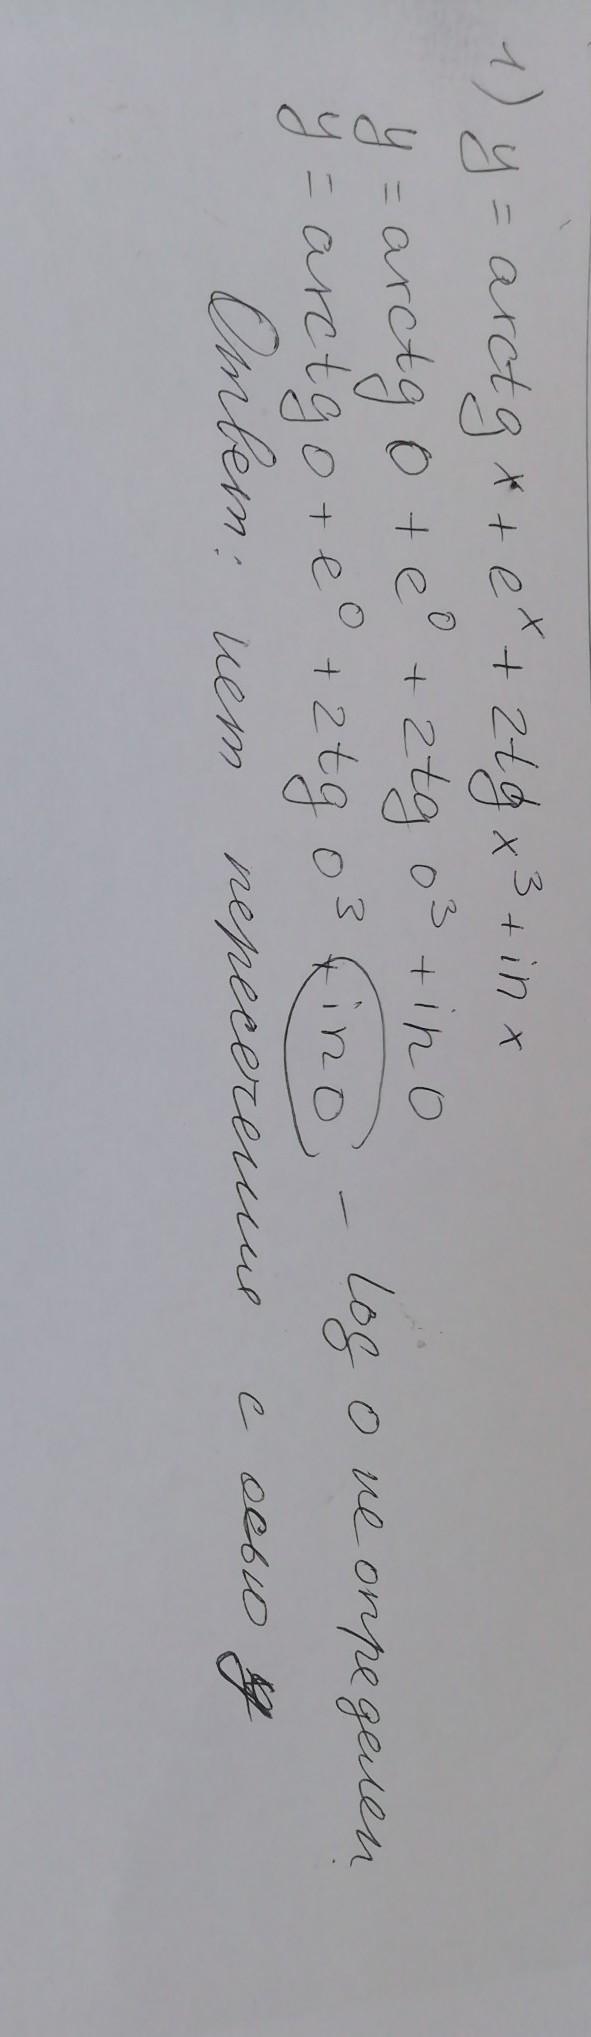 1) y = arctg x + e^x + 2tg x³ + in x
y = arctg 0 + e⁰ + 2tg 0³ + in 0
y = arctg 0 + e⁰ + 2tg 0³ + in 0 - log 0 не определен
Ответ: нет пересечения с осью y